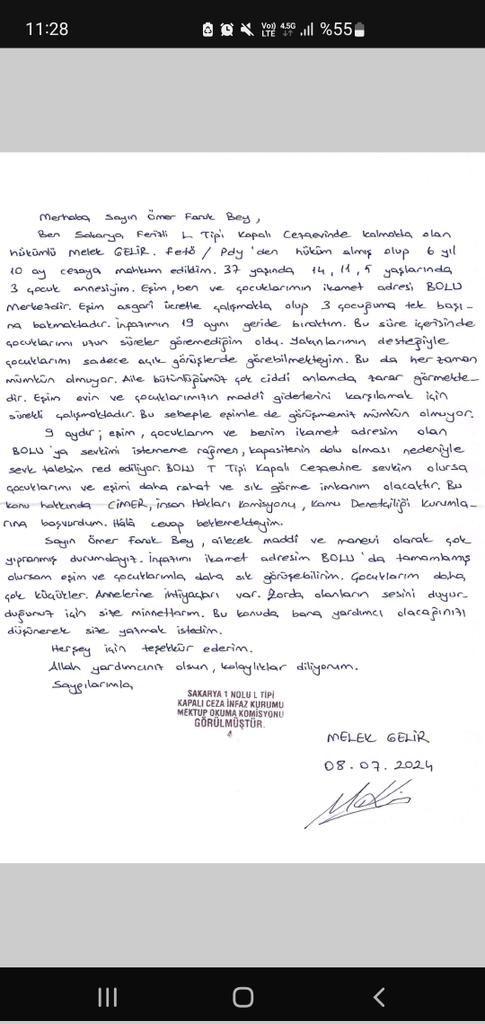 11:28
Vo)) LTE 4.5G %55
Merhaba Sayın Ömer Faruk Bey,
Ben Sakarya Ferizli L Tipi Kapalı Cezaevinde kalmakta olan
hükümlü Melek GELİR. fetö / Pdy 'den hüküm almış olup 6 yıl
10 ay cezaya mahkum edildim. 37 yaşında 14, 11, 5 yaşlarında
3 çocuk annesiyim. Eşim, ben ve çocuklarımın ikamet adresi BOLU
Merkezdir. Eşim asgari ücretle çalışmakta olup 3 çocuğuma tek başı-
na bakmaktadır. İnfazımın 19 ayını geride bıraktım. Bu süre içerisinde
çocuklarımı uzun süreler göremediğim oldu. Yakınlarımın desteğiyle
çocuklarımı sadece açık görüşlerde görebilmekteyim. Bu da her zaman
mümkün olmuyor. Aile bütünlüğümüz çok ciddi anlamda zarar görmekte-
dir. Eşim evin ve çocuklarımızın maddi giderlerini karşılamak için
sürekli çalışmaktadır. Bu sebeple eşimle de görüşmemiz mümkün olmuyor.
9 aydır; eşim, çocuklarım ve benim ikamet adresim olan
BOLU 'ya sevkimi istememe rağmen, kapasitenin dolu olması nedeniyle
sevk talebim red ediliyor. BOLU T Tipi Kapalı Cezaevine sevkim olursa
çocuklarımı ve eşimi daha rahat ve sık görme imkanım olacaktır. Bu
konu hakkında CİMER, insan Hakları Komisyonu, Kamu Denetçiliği Kurumla-
rına başvurdum. Hâlâ cevap beklemekteyim.
Sayın Ömer Faruk Bey, ailecek maddi ve manevi olarak çok
yıpranmış durumdayız. İnfazımı ikamet adresim BOLU 'da tamamlamış
olursam eşim ve çocuklarımla daha sık görüşebilirim. Çocuklarım daha
çok küçükler. Annelerine ihtiyaçları var. Zorda olanların sesini duyur-
duğunuz için size minnettarım. Bu konuda bana yardımcı olacağınızı
düşünerek size yazmak istedim.
Herşey için teşekkür ederim.
Allah yardımcınız olsun, kolaylıklar diliyorum.
Saygılarımla
SAKARYA 1 NOLU L TİPİ
KAPALI CEZA İNFAZ KURUMU
MEKTUP OKUMA KOMİSYONU
GÖRÜLMÜŞTÜR.
MELEK GELİR
08.07.2024